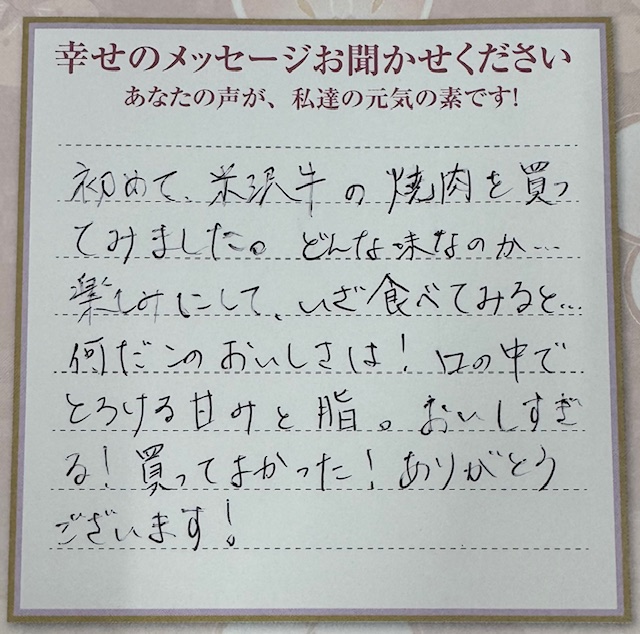 幸せのメッセージお聞かせください
あなたの声が、私達の元気の素です!
初めて、米沢牛の焼肉を買っ
てみました。どんな味なのか…
楽しみにして、いざ食べてみると…
何だこのおいしさは!口の中で
とろける甘みと脂。おいしすぎ
る!買ってよかった!ありがとう
ございます!